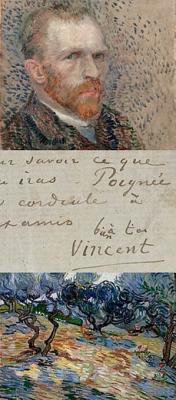 ur savoir ce que
u iras - Poignée
cordiale à
amis bien à toi
Vincent